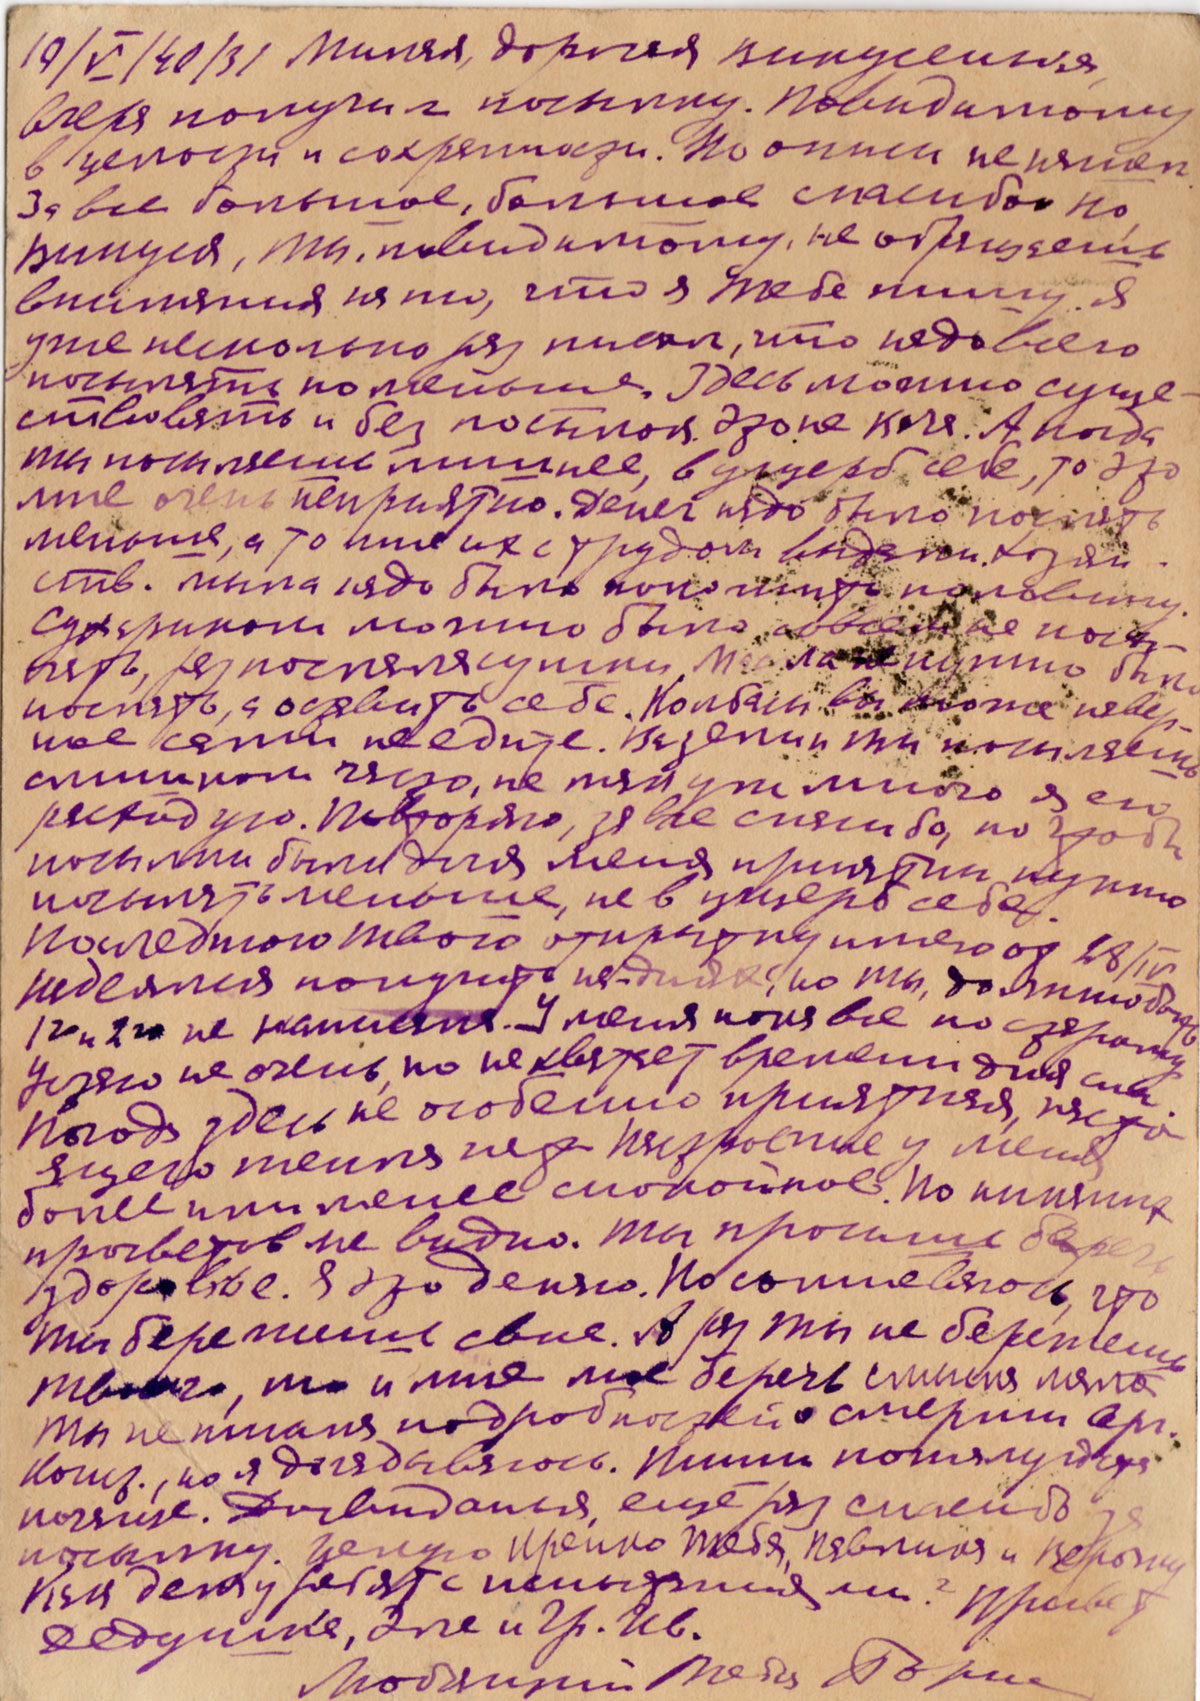 19/V/40/31 Милая, дорогая Кикусенька,
вчера получил посылку. Повидимому
в целости и сохранности. Но описи не нашел.
За все большое, большое спасибо. Но
Кикуся, ты, повидимому, не обращаешь
внимания на то, что я тебе пишу. Я
уже несколько раз писал, что надо всего
посылать поменьше. Здесь можно суще-
ствовать и без посылок. Это не Коча. А когда
ты посылаешь лишнее, в ущерб себе, то это
мне очень неприятно. Денег надо было послать
меньше, а то мне их с трудом выдали. Хозяй-
ств. мыла надо было положить половину.
Сухариков можно было совсем не посы-
лать, раз послала сушки. Масла не нужно было
послать, а оставить себе. Колбасы вы тоже навер-
ное сами не едите. Вазелин ты посылаешь
слишком часто, не так уж много я его
расходую. Повторяю, за все спасибо, но чтобы
посылки были для меня приятны нужно
посылать меньше, не в ущерб себе.
Последнюю твою открытку имею от 28/IV
Надеялся получить на-днях, но ты, должно быть
1го и 2го не написала. У меня пока все по старому
Устаю не очень, но не хватает времени для сна.
Погода здесь не особенно приятная, насто-
ящего тепла нет. Настроение у меня
более или менее спокойное. Но никаких
просветов не видно. Ты просишь беречь
здоровье. Я это делаю. Но сомневаюсь, что
ты бережешь свое. А раз ты не бережешь
твоего, то и мне мое беречь смысла мало
Ты не писала подробностей о смерти Арк.
Конст., но я догадываюсь. Пиши пожалуйста
почаще. До свиданья, ещё раз спасибо за
посылку. Целую крепко тебя, Павлика и Верочку
Как дела у ребят с испытаниями? Привет
дедушке, Эле и Гр. Ив.
Любящий тебя Борис